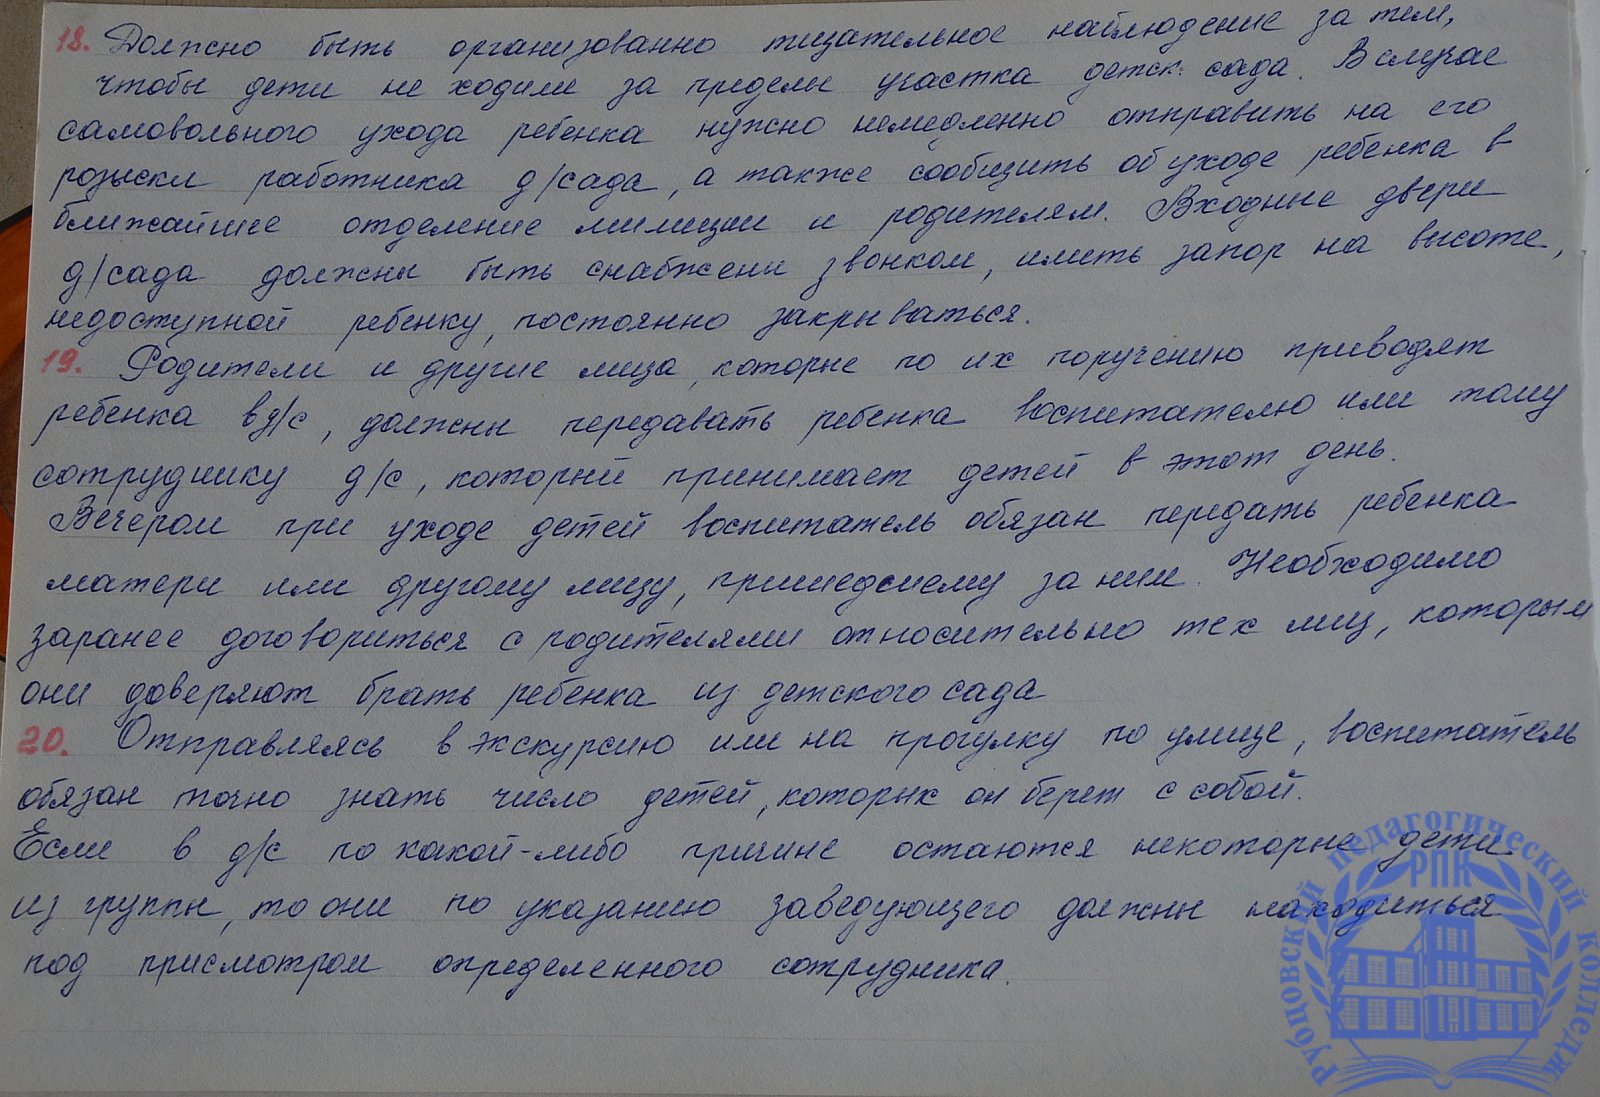 18. Должно быть организованно тщательное наблюдение за тем,
чтобы дети не ходили за пределы участка детск. сада. В случае
самовольного ухода ребенка нужно немедленно отправить на его
розыски работника д/сада, а также сообщить об уходе ребенка в
ближайшее отделение милиции и родителям. Входные двери
д/сада должны быть снабжены звонком, иметь запор на высоте,
недоступной ребенку, постоянно закрываться.
19. Родители и другие лица, которые по их поручению приводят
ребенка в д/с, должны передавать ребенка воспитателю или тому
сотруднику д/с, который принимает детей в этот день.
Вечером при уходе детей воспитатель обязан передать ребенка
матери или другому лицу, пришедшему за ним. Необходимо
заранее договориться с родителями относительно тех лиц, которым
они доверяют брать ребенка из детского сада
20. Отправляясь в экскурсию или на прогулку по улице, воспитатель
обязан точно знать число детей, которых он берет с собой.
Если в д/с по какой-либо причине остаются некоторые дети
из группы, то они по указанию заведующего должны находиться
под присмотром определенного сотрудника.
Рубцовский педагогический колледж
РПК